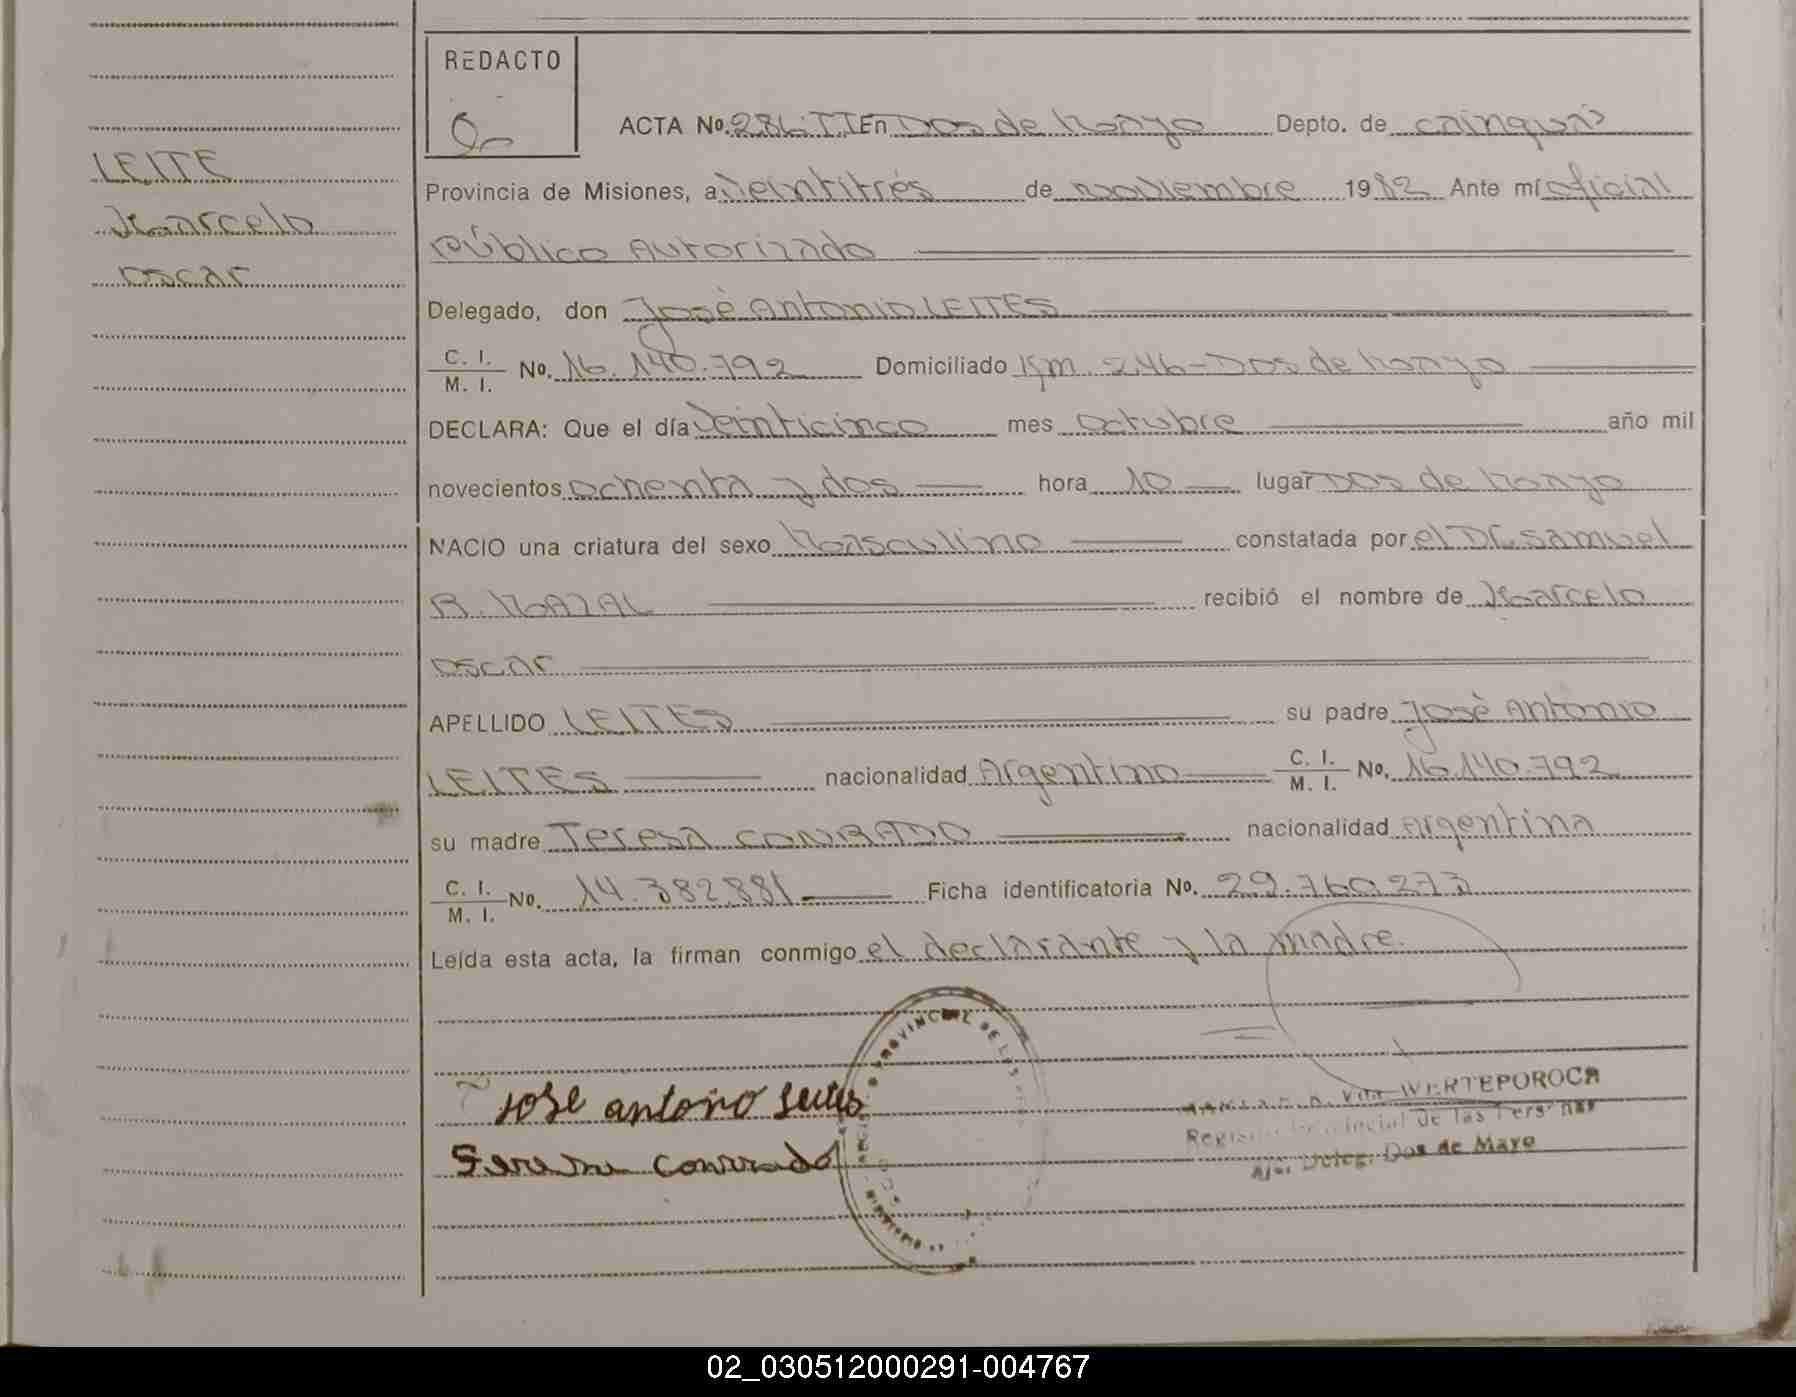 REDACTO
ACTA No. 286 T II En Dos de Mayo Depto. de Cainguás
LEITE
Marcelo
Oscar
Provincia de Misiones, a Veintitrés de noviembre 1982 Ante mí oficial
Público Autorizado
Delegado, don José Antonio LEITES
C. I.
M. I. No. 16.140.792 Domiciliado Km. 246-Dos de Mayo
DECLARA: Que el día Veinticinco mes Octubre año mil
novecientos ochenta y dos hora 10 lugar Dos de Mayo
NACIO una criatura del sexo Masculino constatada por el Dr. Samuel
R. MAZAL recibió el nombre de Marcelo
Oscar
APELLIDO LEITES su padre José Antonio
LEITES nacionalidad Argentino C. I.
M. I. No. 16.140.792
su madre Teresa CONRADO nacionalidad Argentina
C. I.
M. I. No. 14.382.881 Ficha identificatoria No. 29.760.273
Leída esta acta, la firman conmigo el declarante y la madre.
PROVINCIAL DE LAS
Jose antonio Leites
conrrado
Vda. WERTEPOROCA
Registro Provincial de las Personas
Deleg. Dos de Mayo
02_030512000291-004767